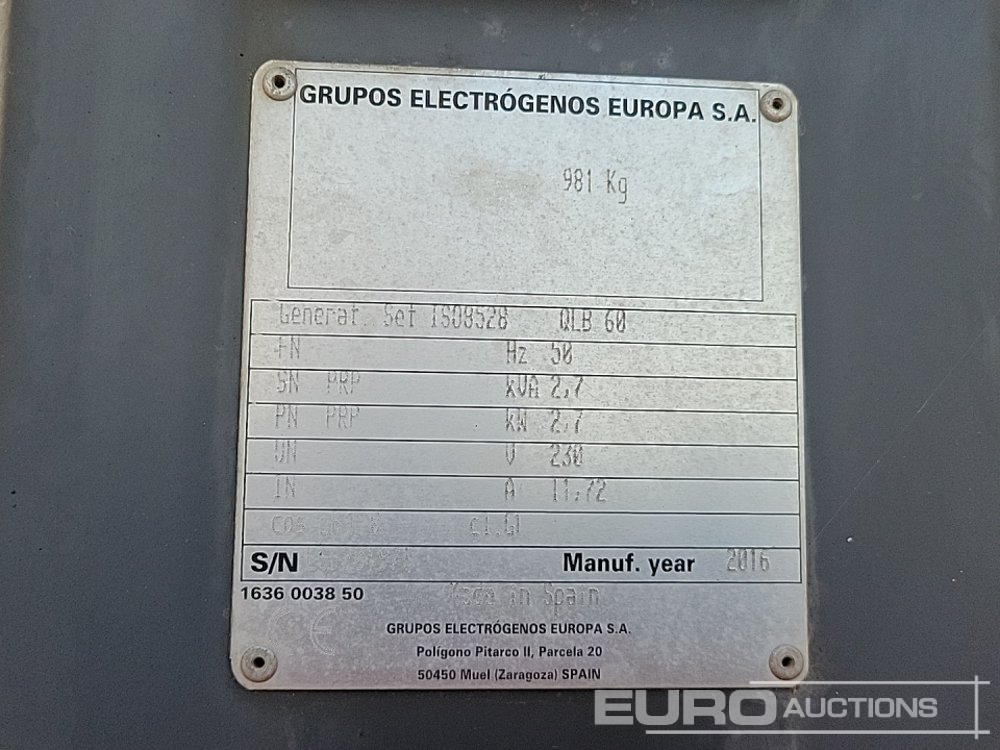 GRUPOS ELECTRÓGENOS EUROPA S.A.
981 Kg
Generat. Set ISO8528 QLB 60
FN Hz 50
SN PRP kVA 2,7
PN PRP kW 2,7
UN V 230
IN A 11,72
cos
S/N Manuf. year 2016
1636 0038 50 Made in Spain
CE
GRUPOS ELECTRÓGENOS EUROPA S.A.
Polígono Pitarco II, Parcela 20
50450 Muel (Zaragoza) SPAIN
EURO AUCTIONS